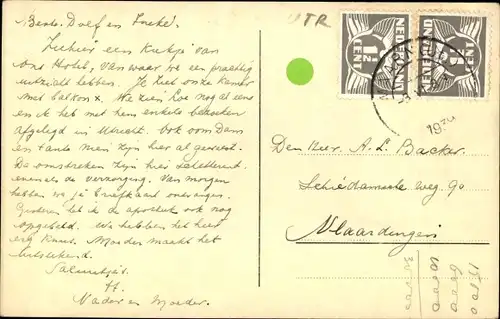 Beste Dolf en Ineke!
Zuhier een kiekje van
ons Hotel, van waar we een prachtig
uitzicht hebben. Je ziet onze kamer
met balkon x. We zien Loe nogal eens
en ik heb met hem enkele bezoeken
afgelegd in Utrecht. Ook oom Dam
en tante Mien zijn hier al geweest.
De omstreken zijn hier schitterend
evenals de verzorging. Van morgen
hebben we je briefkaart ontvangen.
Gisteren heb ik de apotheek ook nog
opgebeld. We hebben het hier
erg knus. Moeder maakt het
uitstekend.
Saluutjes.
Vader en Moeder.
UTR
1½
CENT
NEDERLAND
CENT
NEDERLAND
Den Heer A. L. Backer.
Schiedamsche weg. 90
Vlaardingen